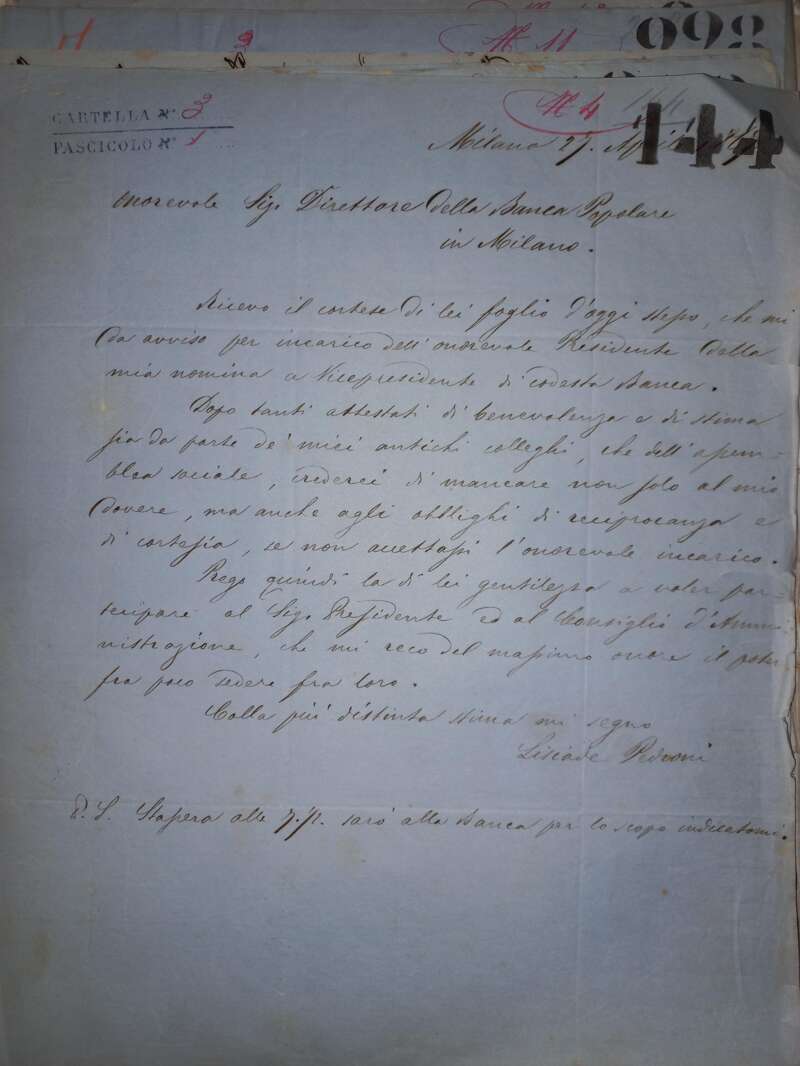 698
N 11
CARTELLA N.° 3
PASCICOLO N.° 1
N 4
144
144
Milano 27. Aprile
Onorevole Sigr Direttore della Banca Popolare
in Milano.
Ricevo il cortese di lei foglio d'oggi stesso, che mi
da avviso per incarico dell'onorevole Presidente della
mia nomina a Vicepresidente di codesta Banca.
Dopo tanti attestati di benevolenza e di stima
sia da parte de' miei antichi colleghi, che dell'assem-
blea sociale, crederei di mancare non solo al mio
dovere, ma anche agli obblighi di reciprocanza e
di cortesia, se non accettassi l'onorevole incarico.
Prego quindi la di lei gentilezza a voler par-
tecipare al Sigr Presidente ed al Consiglio d'Ammi-
nistrazione, che mi reco del massimo onore il poter
fra poco sedere fra loro.
Colla più distinta stima mi segno
Lisiade Pedroni
P. S. Stasera alle 7. p. sarò alla Banca per lo scopo indicatomi.